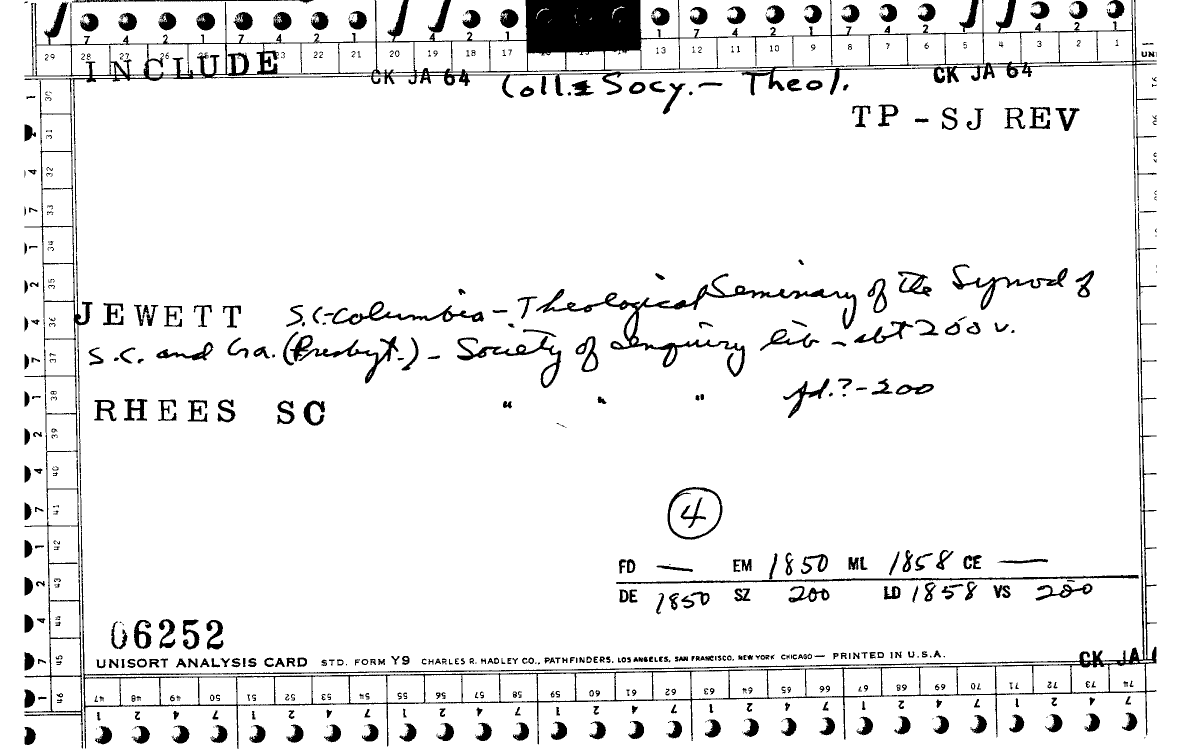 1 7 4 2 1 7 4 2 1 7 4 2 1 1 7 4 2 1 7 4 2 1 7 4 2 1
29 28 27 26 25 24 23 22 21 20 19 18 17 16 15 14 13 12 11 10 9 8 7 6 5 4 3 2 1 UNI
INCLUDE
CK JA 64 Coll. & Socy. - Theol. CK JA 64
TP - SJ REV
JEWETT S.C.-Columbia - Theological Seminary of the Synod of
S.C. and Ga. (Presbyt.) - Society of Inquiry lib - abt 200 v.
RHEES SC " " " fd.? - 200
4
FD — EM 1850 ML 1858 CE —
DE 1850 SZ 200 LD 1858 VS 200
06252
UNISORT ANALYSIS CARD STD. FORM Y9 CHARLES R. HADLEY CO., PATHFINDERS, LOS ANGELES, SAN FRANCISCO, NEW YORK CHICAGO — PRINTED IN U.S.A.
CK JA
1 30
2 31
4 32
7 33
1 34
2 35
4 36
7 37
1 38
2 39
4 40
7 41
1 42
2 43
4 44
7 45
1 46
47 48 49 50 51 52 53 54 55 56 57 58 59 60 61 62 63 64 65 66 67 68 69 70 71 72 73 74
1 2 4 7 1 2 4 7 1 2 4 7 1 2 4 7 1 2 4 7 1 2 4 7 1 2 4 7